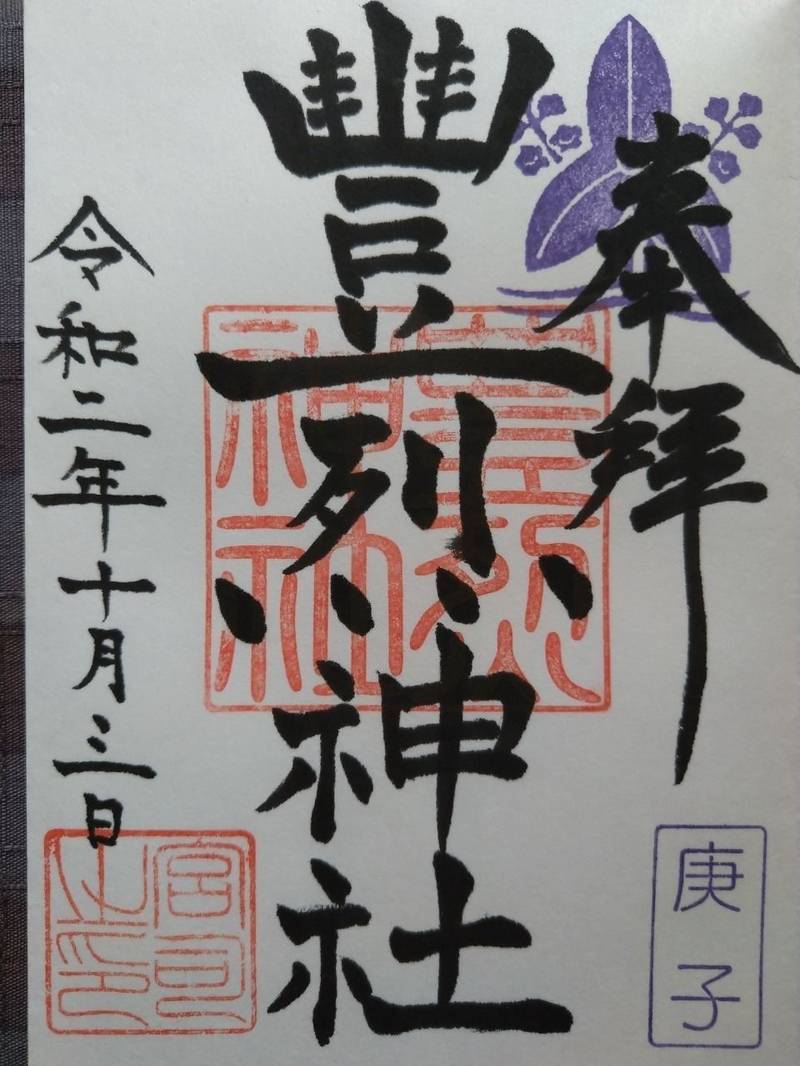 奉拝
庚子
豐烈神社
豐烈
神社
令和二年十月三日
宮司
之印